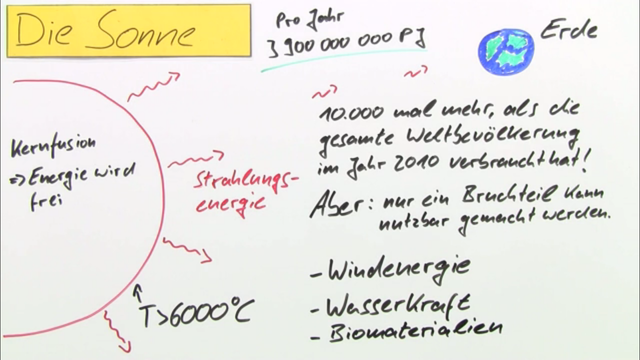 Die Sonne
Pro Jahr
3 900 000 000 PJ
Erde
Kernfusion
⇒ Energie wird
frei
Strahlungs-
energie
T>6000°C
10.000 mal mehr, als die
gesamte Weltbevölkerung
im Jahr 2010 verbraucht hat!
Aber: nur ein Bruchteil kann
nutzbar gemacht werden.
- Windenergie
- Wasserkraft
- Biomaterialien